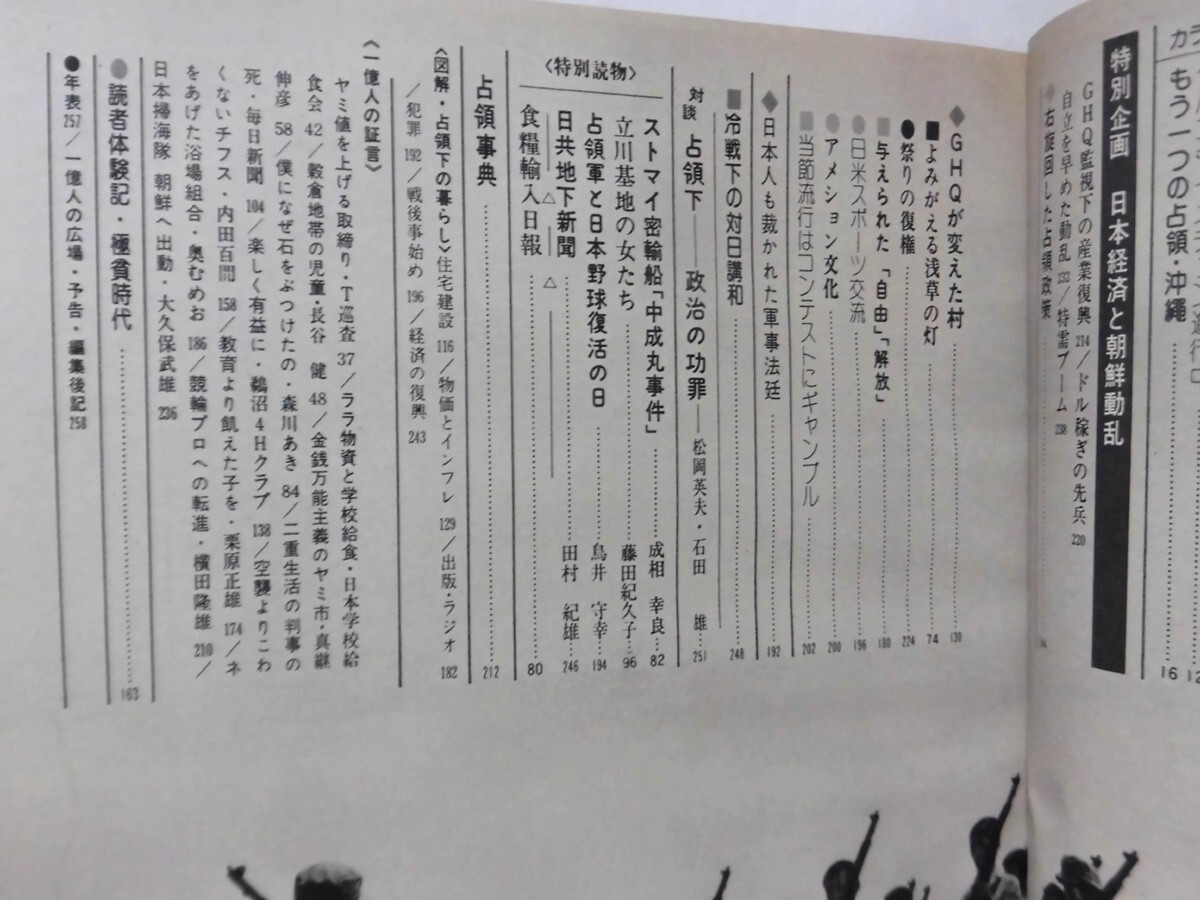 もう一つの占領・沖縄
16
特別企画 日本経済と朝鮮動乱
GHQ監視下の産業復興 214／ドル稼ぎの先兵 220
自立を早めた動乱 232／特需ブーム 238
◆右旋回した占領政策
◆GHQが変えた村 130
■よみがえる浅草の灯 74
●祭りの復権 224
■与えられた「自由」「解放」 180
●日米スポーツ交流 196
●アメション文化 200
■当節流行はコンテストにギャンブル 202
◆日本人も裁かれた軍事法廷 192
■冷戦下の対日講和 248
対談 占領下――政治の功罪――松岡英夫・石田 雄 251
〈特別読物〉
ストマイ密輸船「中成丸事件」 成相 幸良 82
立川基地の女たち 藤田紀久子 96
占領軍と日本野球復活の日 鳥井 守幸 194
日共地下新聞 田村 紀雄 246
食糧輸入日報 80
占領事典 212
〈図解・占領下の暮らし〉住宅建設 116／物価とインフレ 129／出版・ラジオ 182
／犯罪 192／戦後事始め 196／経済の復興 243
〈一億人の証言〉
ヤミ値を上げる取締り・T巡査 37／ララ物資と学校給食・日本学校給
食会 42／穀倉地帯の児童・長谷 健 48／金銭万能主義のヤミ市・真継
伸彦 58／僕になぜ石をぶつけたの・森川あき 84／二重生活の判事の
死・毎日新聞 104／楽しく有益に・鵜沼4Hクラブ 138／空襲よりこわ
くないチフス・内田百閒 158／教育より飢えた子を・栗原正雄 174／ネ
をあげた浴場組合・奥むめお 186／競輪プロへの転進・横田隆雄 210／
日本掃海隊 朝鮮へ出動・大久保武雄 236
●読者体験記・極貧時代 163
●年表257／一億人の広場・予告・編集後記 258